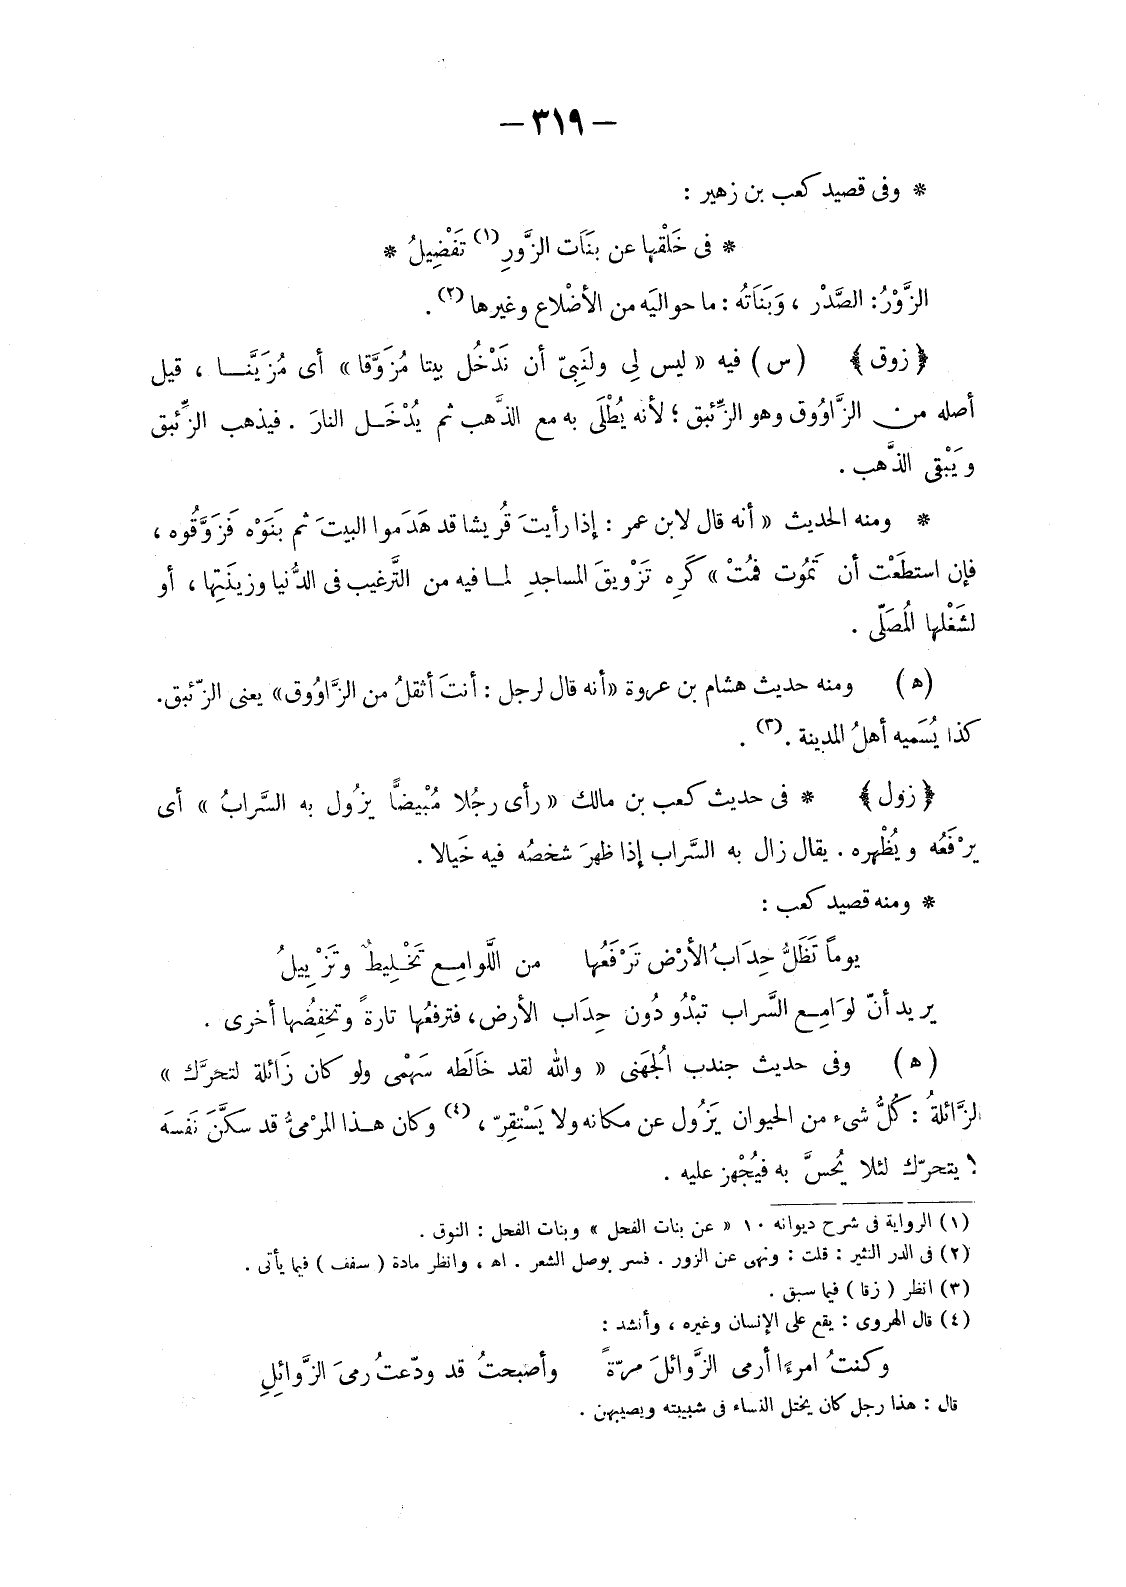 — ٣١٩ —
* وفى قصيد كعب بن زهير :
* فى خَلْقها عن بنَات الزَّورِ (١) تَفْضِيلُ *
الزَّوْرُ: الصَّدْر ، وَبَنَاتُه : ما حواليَه من الأضْلاع وغيرها (٢) .
﴿ زوق ﴾ (س) فيه « ليس لِي ولنَبِىّ أن نَدْخُل بيتا مُزَوَّقا » أى مُزَيَّنا ، قيل
أصله من الزَّاوُوق وهو الزِّئبق ؛ لأنه يُطْلَى به مع الذَّهب ثم يُدْخَل النارَ . فيذهب الزِّئبق
ويَبْقى الذَّهب .
* ومنه الحديث « أنه قال لابن عمر : إذا رأيتَ قُريشا قد هَدَموا البيتَ ثم بَنَوْه فَزَوَّقُوه ،
فإن استطَعْت أن تَمُوت فمُتْ » كَرِه تَزْويقَ المساجدِ لما فيه من التَّرغيب فى الدُّنيا وزينَتِها ، أو
لشَغْلها المُصَلّى .
(ه) ومنه حديث هشام بن عروة «أنه قال لرجل : أنتَ أثقلُ من الزَّاوُوق» يعنى الزّئبق.
كذا يُسَميه أهلُ المدينة .(٣) .
﴿ زول ﴾ * فى حديث كعب بن مالك « رأى رجُلا مُبْيضًّا يزُول به السَّرابُ » أى
يرْفَعُه ويُظْهره . يقال زال به السَّراب إذا ظهرَ شخصُه فيه خَيالا .
* ومنه قصيد كعب :
يوماً تَظَلُّ حِدَابُ الأرْض تَرْفَعُها من اللَّوامِع تَخْلِيطٌ وتَزْيِيلُ
يريد أنّ لوَامِع السَّراب تبْدُو دُون حِدَاب الأرض، فترفعُها تارةً وتخفِضُها أخرى .
(ه) وفى حديث جندب الُجهَنى « والله لقد خاَلَطه سَهْمى ولو كان زَائلة لتحرَّك »
الزَّائلةُ : كُلُّ شىء من الحيوان يَزُول عن مكانه ولا يَسْتقِرّ ، (٤) وكان هذا المرْمىُّ قد سكَّنَ نَفسَه
لا يتحرّك لئلا يُحسَّ به فيُجْهز عليه .
(١) الرواية فى شرح ديوانه ١٠ « عن بنات الفحل » وبنات الفحل : النوق .
(٢) فى الدر النثير : قلت : ونهى عن الزور . فسر بوصل الشعر . اه ، وانظر مادة ( سفف ) فيما يأتى .
(٣) انظر ( زقا ) فيما سبق .
(٤) قال الهروى : يقع على الإنسان وغيره ، وأنشد :
وكنتُ امرءًا أرمى الزَّوائلَ مرّةً وأصبحتُ قد ودّعتُ رمىَ الزَّوائلِ
قال : هذا رجل كان يختل النساء فى شبيبته ويصيبهن .